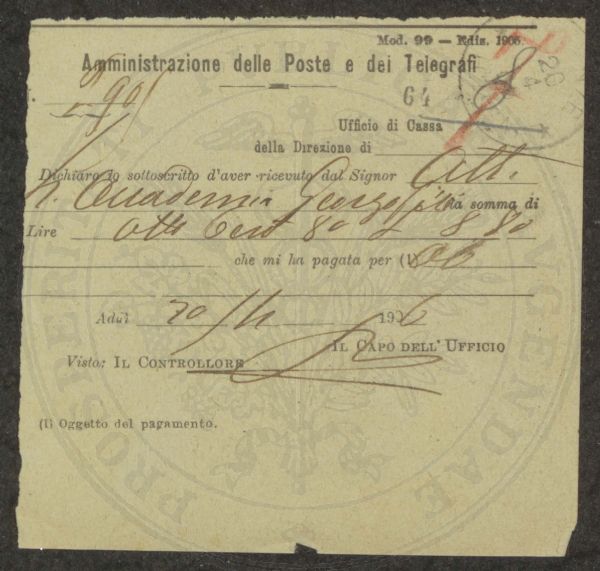 Mod. 99 — Ediz. 1905
Amministrazione delle Poste e dei Telegrafi
64
20
4
Ufficio di Cassa
della Direzione di
Dichiaro io sottoscritto d'aver ricevuto dal Signor
R. Accademia Georgofili la somma di
Lire Otto Cent 80 L 8 80
che mi ha pagata per (1)
Addì 20/4 1906
IL CAPO DELL' UFFICIO
Visto: IL CONTROLLORE
(1) Oggetto del pagamento.
PROSPERITATI AUGENDAE